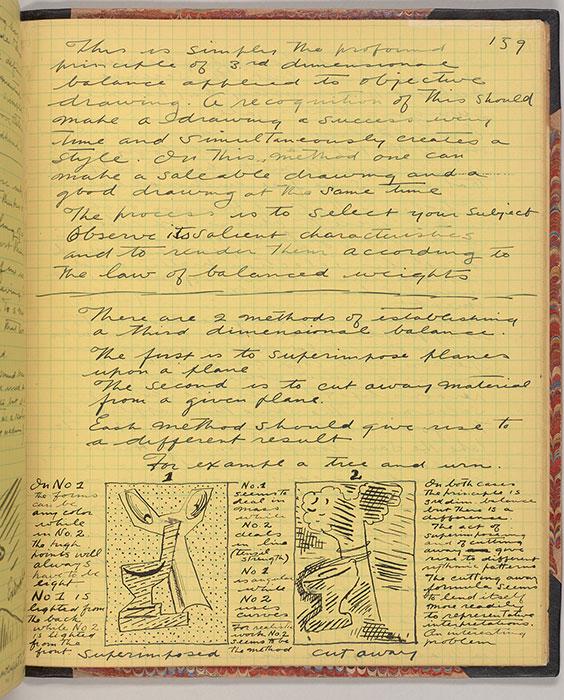 139
This is simply the profound
principle of 3rd dimensional
balance applied to objective
drawing. A recognition of this should
make a drawing a success every
time and simultaneously creates a
style. In this method one can
make a saleable drawing and a
good drawing at the same time
The process is to select your subject
Observe its salient characteristics
and to render them according to
the law of balanced weights
There are 2 methods of establishing
a third dimensional balance.
The first is to superimpose planes
upon a plane
The second is to cut away material
from a given plane.
Each method should give rise to
a different result
For example a tree and urn.
1
2
In No 1
the forms
can be
any color
while
in No 2.
the high
points will
always
have to be
light
No 1 is
lighted from
the back
while No 2
is lighted
from the
front
No. 1
seems to
deal in
mass
while
No. 2
deals
in line
strength)
No 1
is angular
while
No 2
uses
curves
work No. 2
seems to be
the method
In both cases
the principle is
3rd dim. balance
but there is a
difference.
The act of
superimposing
and of cutting
away give
rise to different
rythmic patterns
The cutting away
formula seems
to lend itself
more readily
to representative
interpretations.
An interesting
problem
Superimposed
cut away